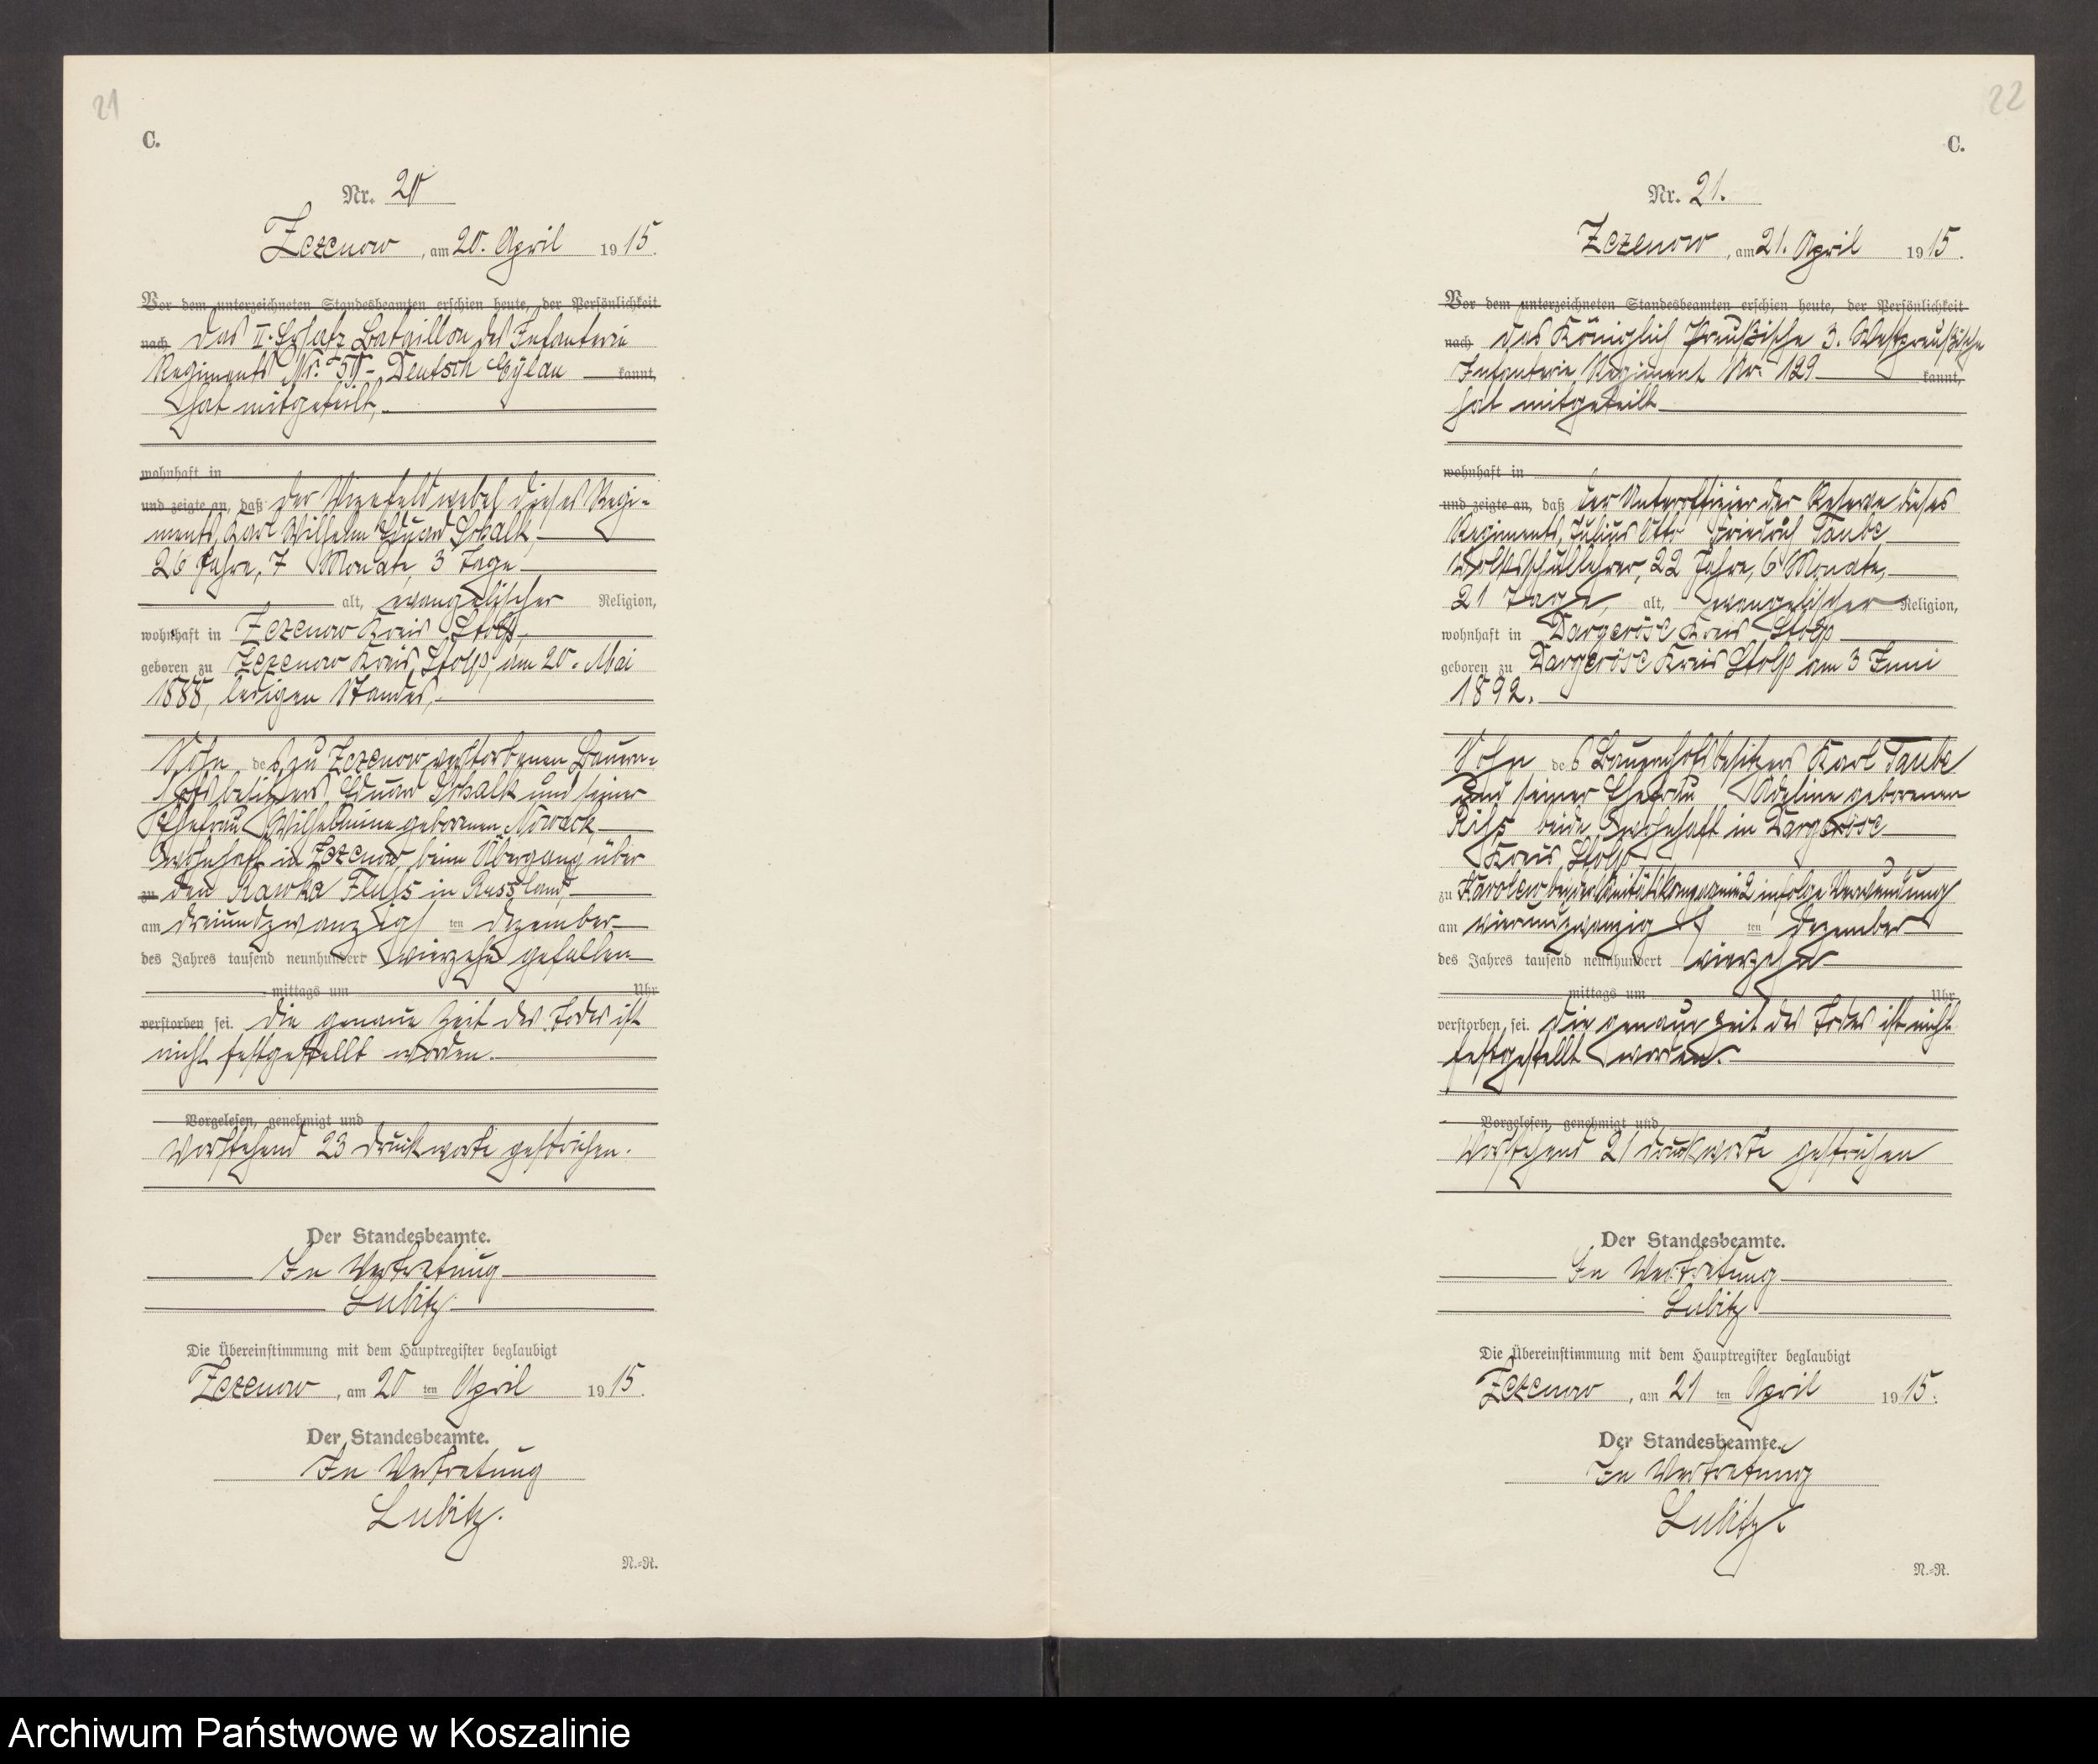 21
C.
Nr. 20
Zezenow, am 20. April 1915.
Vor dem unterzeichneten Standesbeamten erschien heute, der Persönlichkeit
nach das II. Ersatz Bataillon des Infanterie
Regiments Nr. 59 - Deutsch Eylau kannt,
hat mitgeteilt,
wohnhaft in
und zeigte an, daß der Vizefeldwebel dieses Regi-
ments, Karl Wilhelm Eduard Schalk,
26 Jahre, 7 Monate, 3 Tage
alt, evangelischer Religion,
wohnhaft in Zezenow Kreis Stolp,
geboren zu Zezenow Kreis Stolp, am 20. Mai
1888, ledigen Standes,
Sohn des zu Zezenow verstorbenen Bauern-
hofsbesitzers Eduard Schalk und seiner
Ehefrau Wilhelmine geborenen Noreck,
wohnhaft in Zezenow, beim Übergang über
zu den Rawka Fluss in Russland,
am dreiundzwanzigsten ten Dezember
des Jahres tausend neunhundert vierzehn gefallen
mittags um Uhr
verstorben sei. Die genaue Zeit des Todes ist
nicht festgestellt worden.
Vorgelesen, genehmigt und
Vorstehend 23 Druckworte gestrichen.
Der Standesbeamte.
In Vertretung
Lubitz.
Die Übereinstimmung mit dem Hauptregister beglaubigt
Zezenow, am 20 ten April 1915.
Der Standesbeamte.
In Vertretung
Lubitz.
N.=R.
22
C.
Nr. 21.
Zezenow, am 21. April 1915.
Vor dem unterzeichneten Standesbeamten erschien heute, der Persönlichkeit
nach das Königlich Preußische 3. Westpreußische
Infanterie Regiment Nr. 129 kannt,
hat mitgeteilt
wohnhaft in
und zeigte an, daß der Unteroffizier der Reserve dieses
Regiments, Julius Otto Friedrich Taube
Volksschullehrer, 22 Jahre, 6 Monate,
21 Tage, alt, evangelischer Religion,
wohnhaft in Dargeröse Kreis Stolp
geboren zu Dargeröse Kreis Stolp am 3 Juni
1892.
Sohn des Bauernhofsbesitzers Karl Taube
und seiner Ehefrau Adeline geborenen
beide wohnhaft in Dargeröse
Kreis Stolp
zu bei der Sanitätskompagnie 2 infolge Verwundung
am vierundzwanzigsten ten Dezember
des Jahres tausend neunhundert vierzehn
mittags um Uhr
verstorben sei. Die genaue Zeit des Todes ist nicht
festgestellt worden.
Vorgelesen, genehmigt und
Vorstehend 21 Druckworte gestrichen
Der Standesbeamte.
In Vertretung
Lubitz
Die Übereinstimmung mit dem Hauptregister beglaubigt
Zezenow, am 21 ten April 1915.
Der Standesbeamte.
In Vertretung
Lubitz.
N.=R.
Archiwum Państwowe w Koszalinie